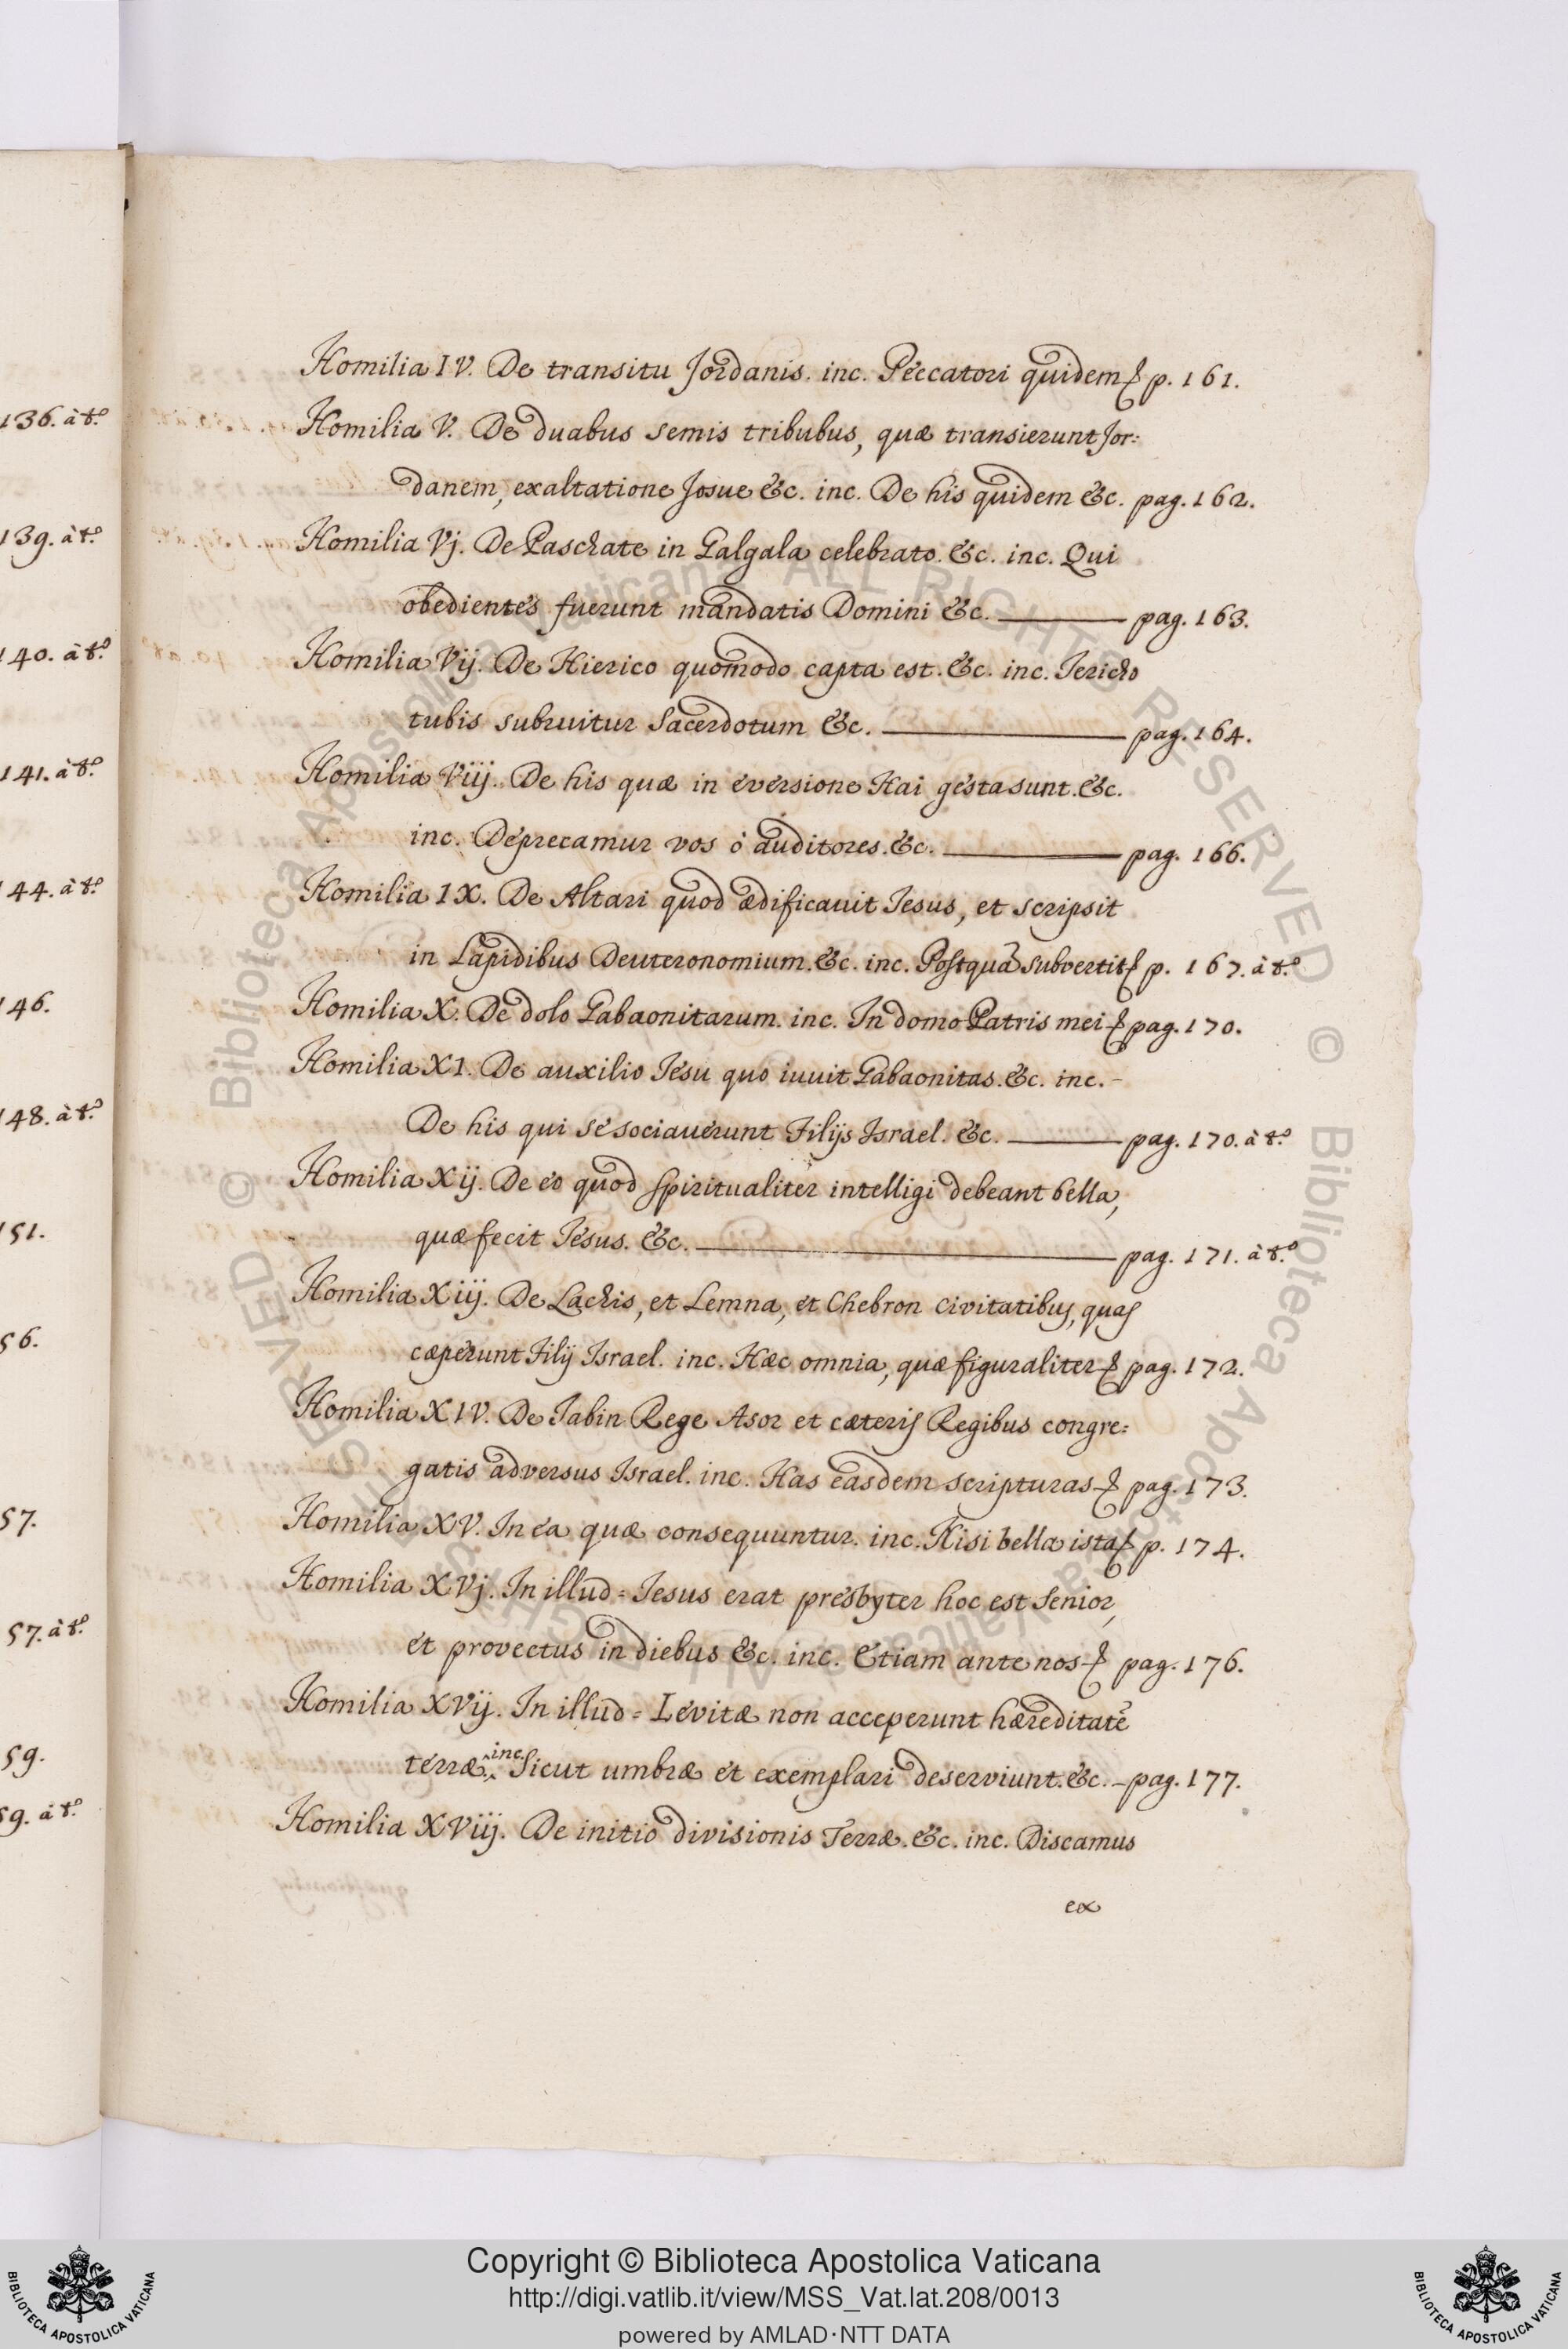 136. à t.º
139. à t.º
140. à t.º
141. à t.º
144. à t.º
146.
148. à t.º
151.
56.
57.
57. à t.º
59.
59. à t.º
Homilia IV. De transitu Jordanis. inc. Peccatori quidem & p. 161.
Homilia V. De duabus semis tribubus, quæ transierunt Jor=
danem, exaltatione Josue &c. inc. De his quidem &c. pag. 162.
Homilia Vj. De Paschate in Galgala celebrato. &c. inc. Qui
obedientes fuerunt mandatis Domini &c. ——— pag. 163.
Homilia Vij. De Hierico quomodo capta est. &c. inc. Jericho
tubis subruitur Sacerdotum &c. ——— pag. 164.
Homilia Viij. De his quæ in eversione Hai gesta sunt. &c.
inc. Deprecamur vos ó auditores. &c. ——— pag. 166.
Homilia IX. De Altari quod ædificauit Jesus, et scripsit
in Lapidibus Deuteronomium. &c. inc. Postquã subvertit & p. 167. à t.º
Homilia X. De dolo Gabaonitarum. inc. In domo Patris mei & pag. 170.
Homilia XI. De auxilio Jesu quo iuuit Gabaonitas. &c. inc. -
De his qui se sociauerunt Filijs Israel. &c. ——— pag. 170. à t.º
Homilia Xij. De eo quod spiritualiter intelligi debeant bella,
quæ fecit Jesus. &c. ——— pag. 171. à t.º
Homilia Xiij. De Lachis, et Lemna, et Chebron civitatibus, quas
cæperunt Filij Israel. inc. Hæc omnia, quæ figuraliter & pag. 172.
Homilia XIV. De Jabin Rege Asor et cæteris Regibus congre=
gatis adversus Israel. inc. Has easdem scripturas & pag. 173.
Homilia XV. In ea quæ consequuntur. inc. Nisi bella ista & p. 174.
Homilia XVj. In illud = Jesus erat presbyter hoc est Senior,
et provectus in diebus &c. inc. Etiam ante nos & pag. 176.
Homilia XVij. In illud = Levitæ non acceperunt hæreditatẽ
terræ. ^inc. Sicut umbræ et exemplari deserviunt. &c. - pag. 177.
Homilia XViij. De initio divisionis Terræ. &c. inc. Discamus
ex
© Biblioteca Apostolica Vaticana ALL RIGHTS RESERVED © Biblioteca Apostolica Vaticana ALL RIGHTS RESERVED
Copyright © Biblioteca Apostolica Vaticana
http://digi.vatlib.it/view/MSS_Vat.lat.208/0013
powered by AMLAD·NTT DATA
BIBLIOTECA APOSTOLICA VATICANA
BIBLIOTECA APOSTOLICA VATICANA